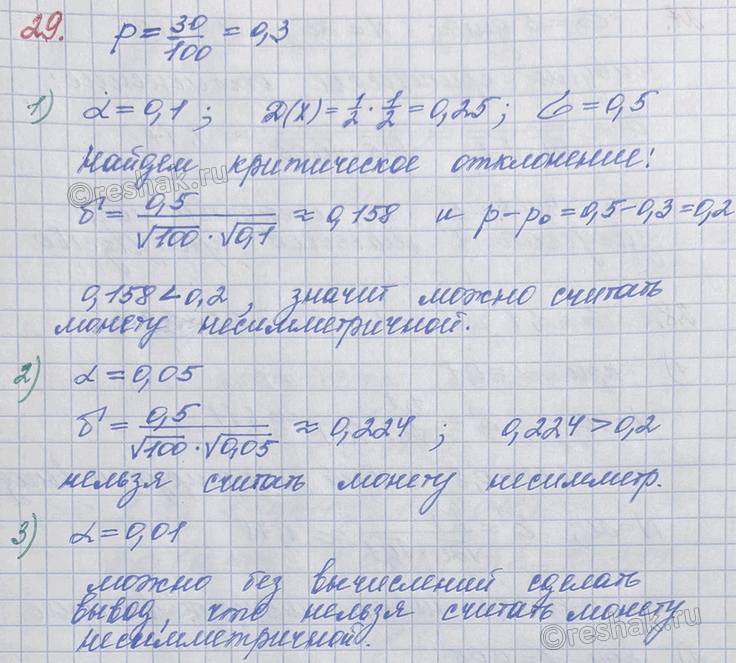 29. p = 30/100 = 0,3
1) α = 0,1 ; D(X) = 1/2 · 1/2 = 0,25; σ = 0,5
Найдем критическое отклонение:
δ = 0,5/(√100 · √0,1) ≈ 0,158 и p − p₀ = 0,5 − 0,3 = 0,2
0,158 < 0,2, значит можно считать
монету несимметричной.
2) α = 0,05
δ = 0,5/(√100 · √0,05) ≈ 0,224 ; 0,224 > 0,2
нельзя считать монету несимметр.
3) α = 0,01
можно без вычислений сделать
вывод, что нельзя считать монету
несимметричной.
©reshak.ru
©reshak.ru